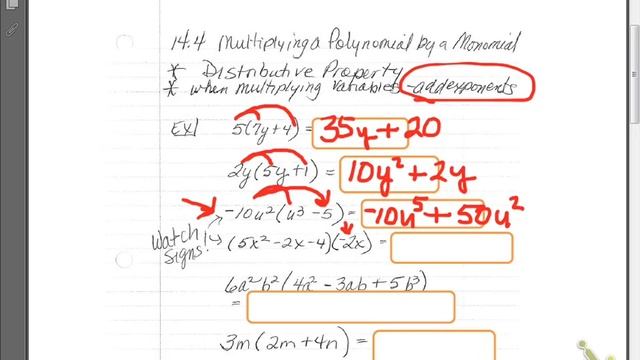 14.4 Multiplying a Polynomial by a Monomial
* Distributive Property
* when multiplying variables - add exponents
Ex1 5(7y+4) = 35y + 20
2y(5y+1) = 10y² + 2y
-10u²(u³ - 5) = -10u⁵ + 50u²
Watch Signs! (5x² - 2x - 4)(-2x) =
6a²b²(4a² - 3ab + 5b³)
=
3m(2m + 4n) =